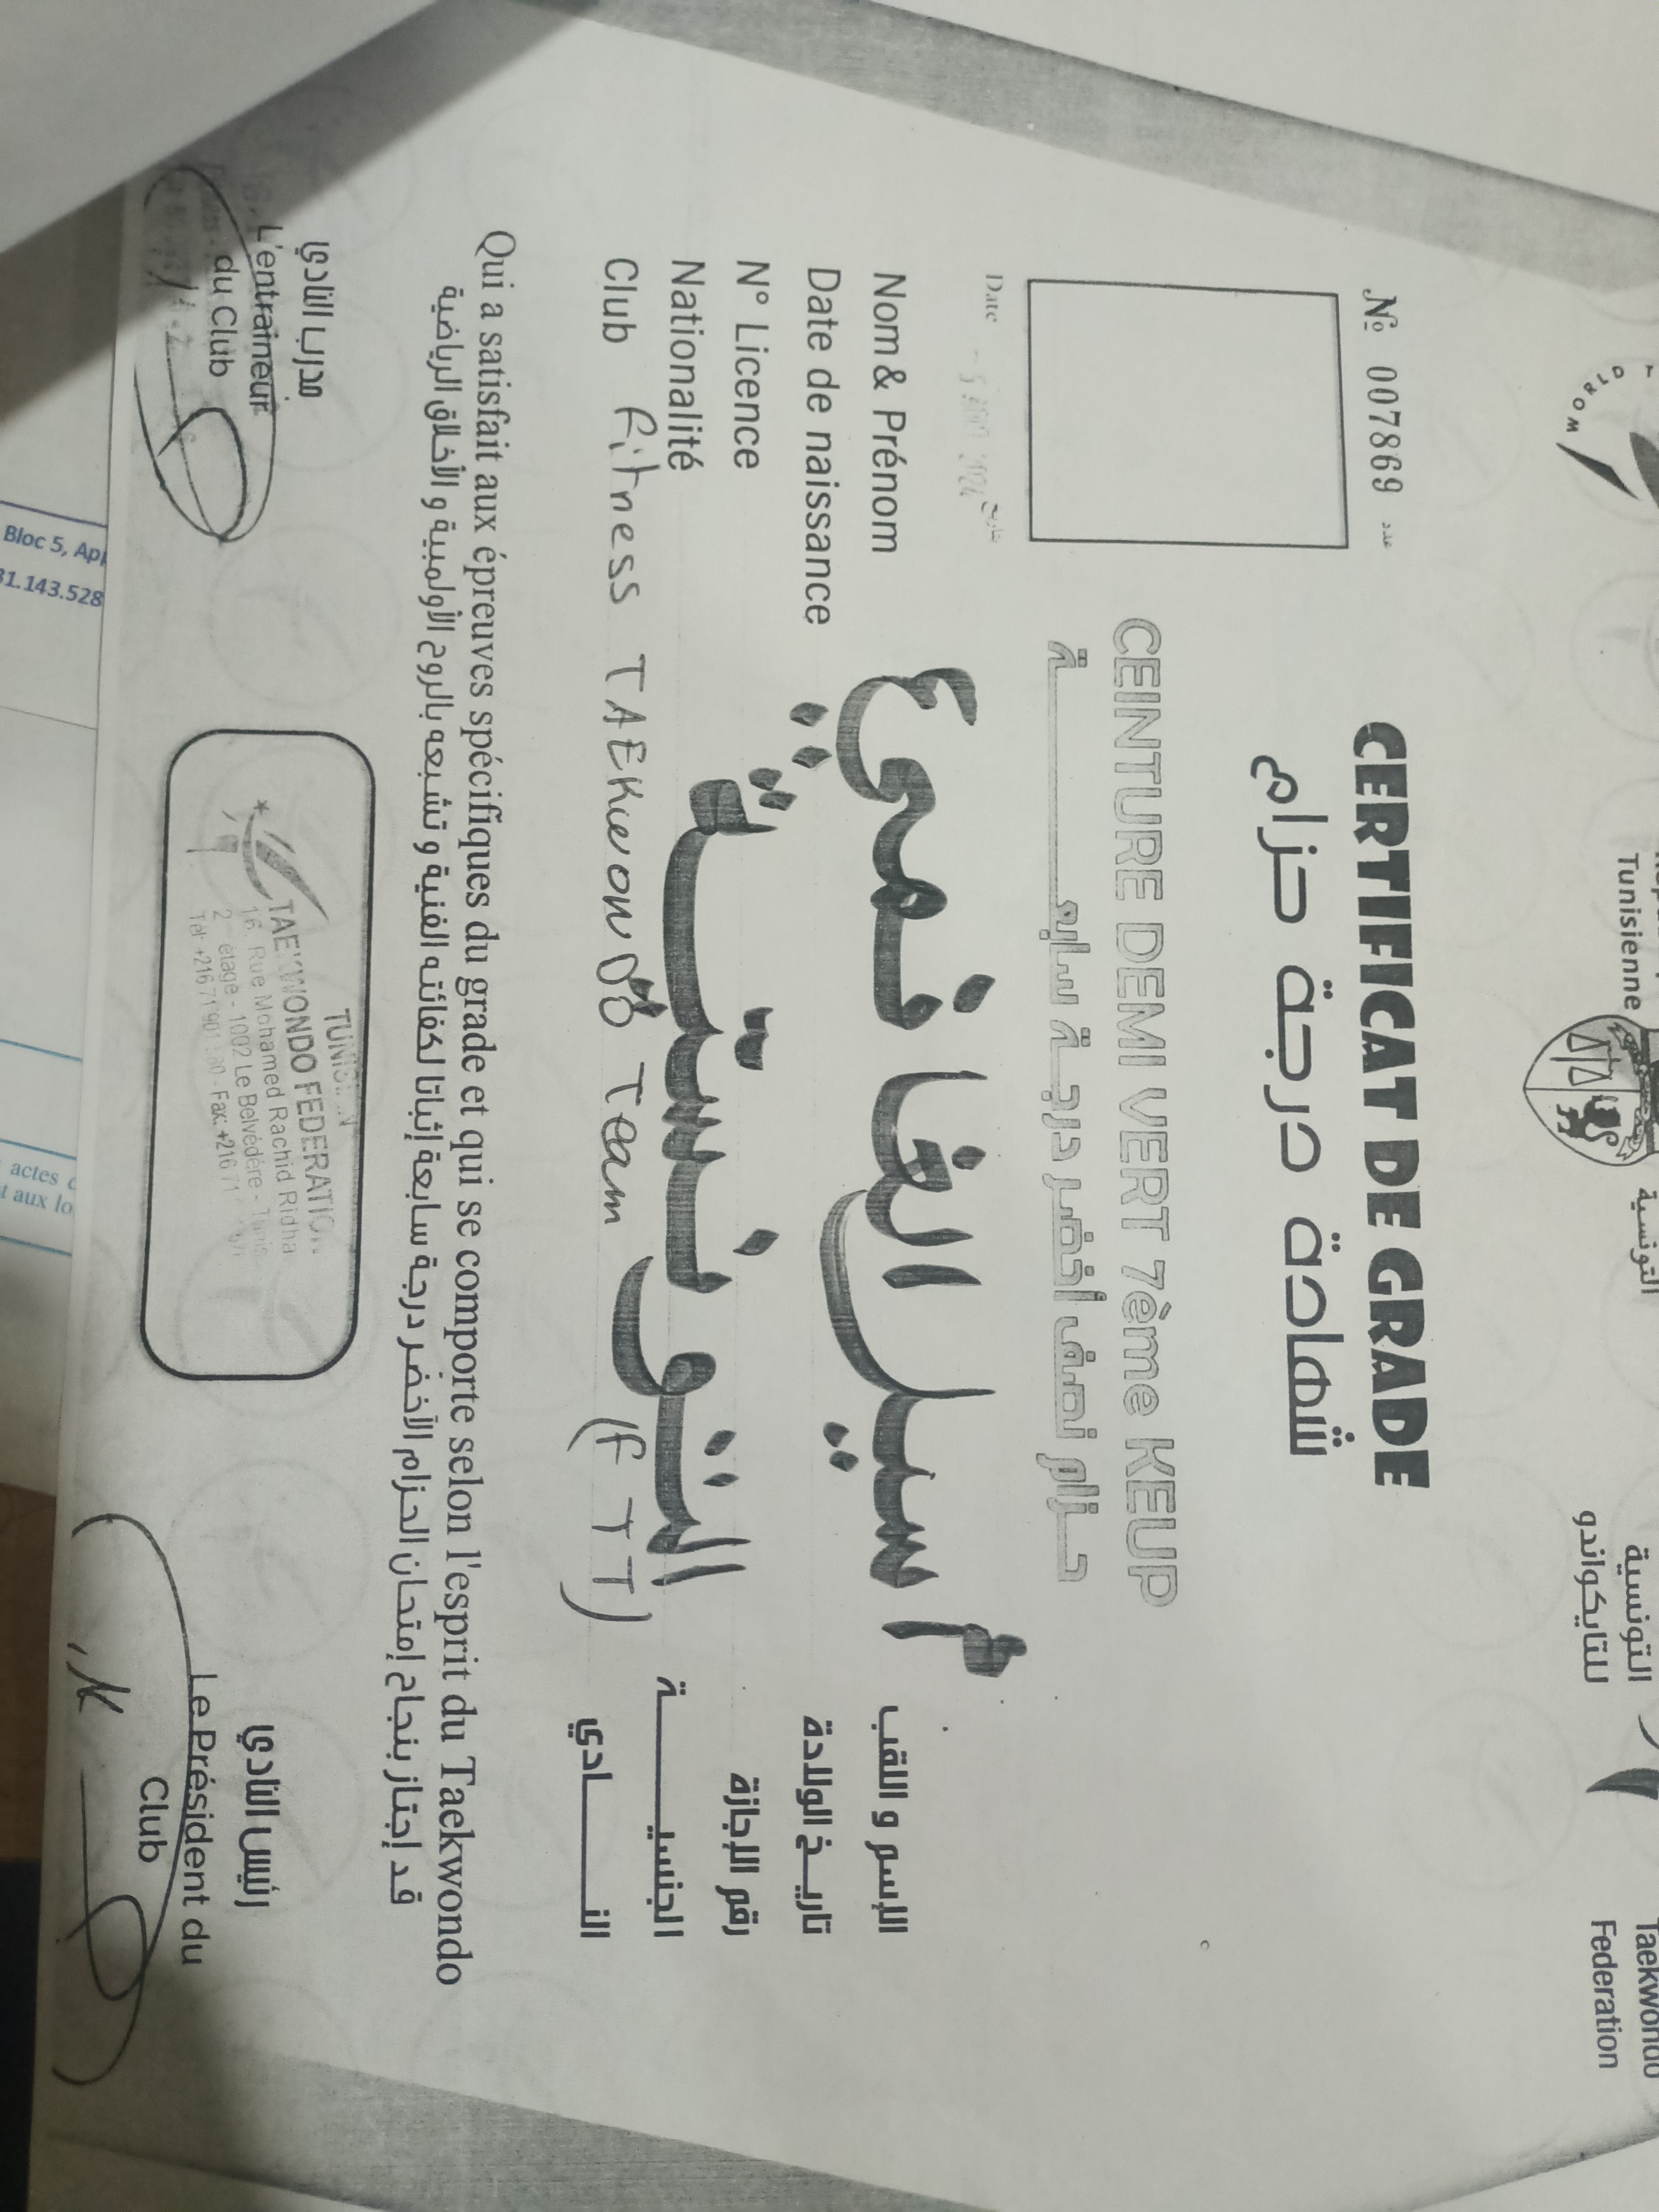 Tunisienne
التونسية
التونسية
للتايكواندو
Taekwondo
Federation
WORLD T
№ 007869 عدد
CERTIFICAT DE GRADE
شهادة درجة حزام
CEINTURE DEMI VERT 7ème KEUP
حزام نصف أخضر درجة سابعة
Date تاريخ
Nom & Prénom
أسيل القا
الإسم و اللقب
Date de naissance
تاريخ الولادة
N° Licence
رقم الإجازة
Nationalité
التونسية
الجنسية
Club Fitness TAEKWONDO Team (FTT) النادي
Qui a satisfait aux épreuves spécifiques du grade et qui se comporte selon l'esprit du Taekwondo
قد إجتاز بنجاح إمتحان الحزام الأخضر درجة سابعة إثباتا لكفائته الفنية و تشبعه بالروح الأولمبية و الأخلاق الرياضية
مدرب النادي
L'entraineur
du Club
TAEKWONDO FEDERATION
16, Rue Mohamed Rachid Ridha
étage - 1002 Le Belvédère - Tunis
رئيس النادي
Le Président du
Club
Bloc 5,
31.143.528
actes